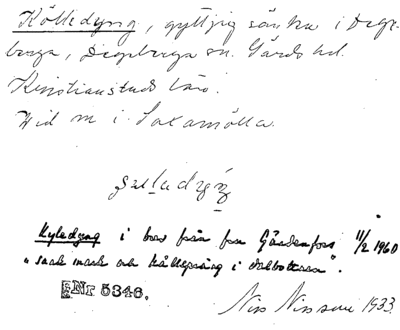 Källedyng, gyttjig sänka i Dege-
berga, Degeberga sn. Gärds hd.
Kristianstads län.
Vid m i Sakamölla.
Kyledyng i brev från fru Gärdenfors 11/2 1960
"sank mark och källsprång i dalbottnen".
ENr 5346.
Nils Nilsson 1933.